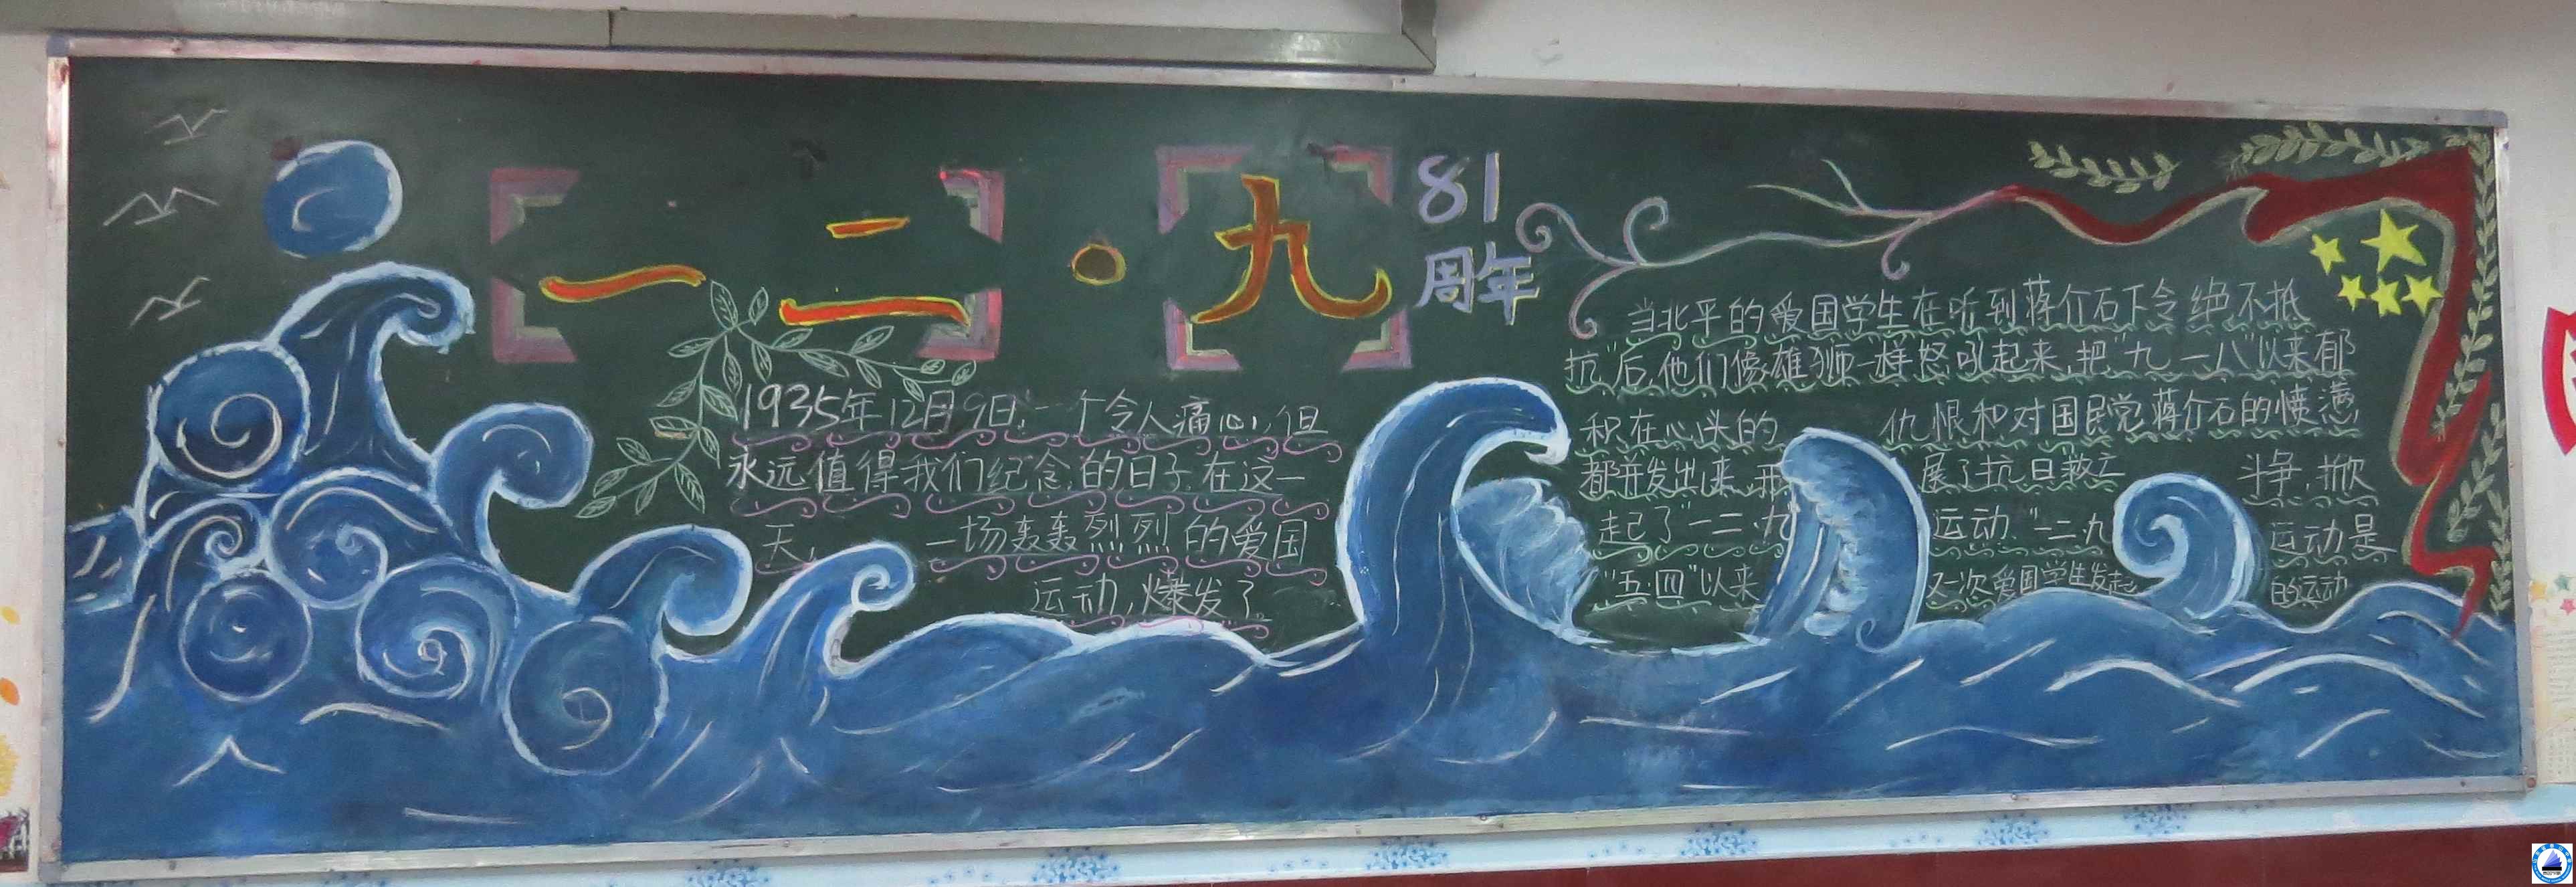 一二·九
81
周年
1935年12月9日,一个令人痛心,但
永远值得我们纪念的日子.在这一
天,一场轰轰烈烈的爱国
运动,爆发了.
当北平的爱国学生在听到蒋介石下令"绝不抵
抗"后,他们像雄狮一样怒吼起来,把"九·一八"以来郁
积在心头的仇恨和对国民党蒋介石的愤懑,
都并发出来,开展了抗日救亡斗争,掀
起了"一二·九运动."一二·九运动是
"五·四"以来又一次爱国学生发起的运动